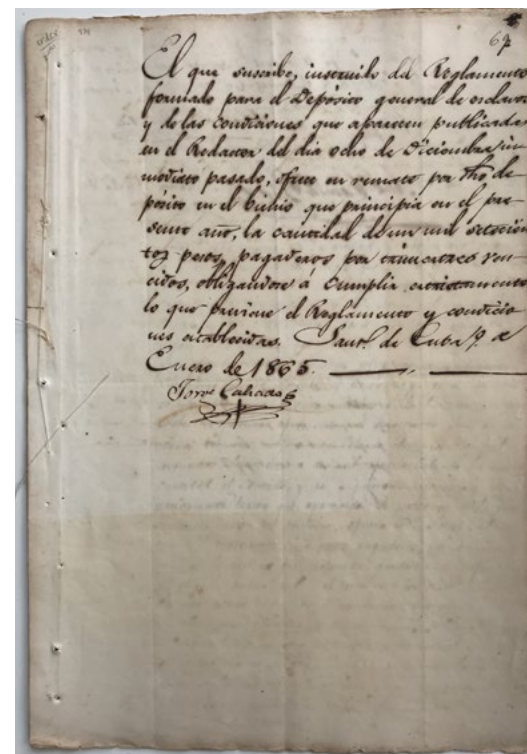 67
El que suscribe, instruido del Reglamento
formado para el Depósito general de esclavos
y de las condiciones que aparecen publicadas
en el Redactor del dia ocho de Diciembre in-
mediato pasado, ofrece en remate por dho de-
pósito en el bienio que principia en el pre-
sente año, la cantidad de un mil setecien
tos pesos, pagaderos por trimestres ven-
cidos, obligandose á cumplir estrictamente
lo que previene el Reglamento y condicio
nes establecidas. Sant.º de Cuba 9 de
Enero de 1865.